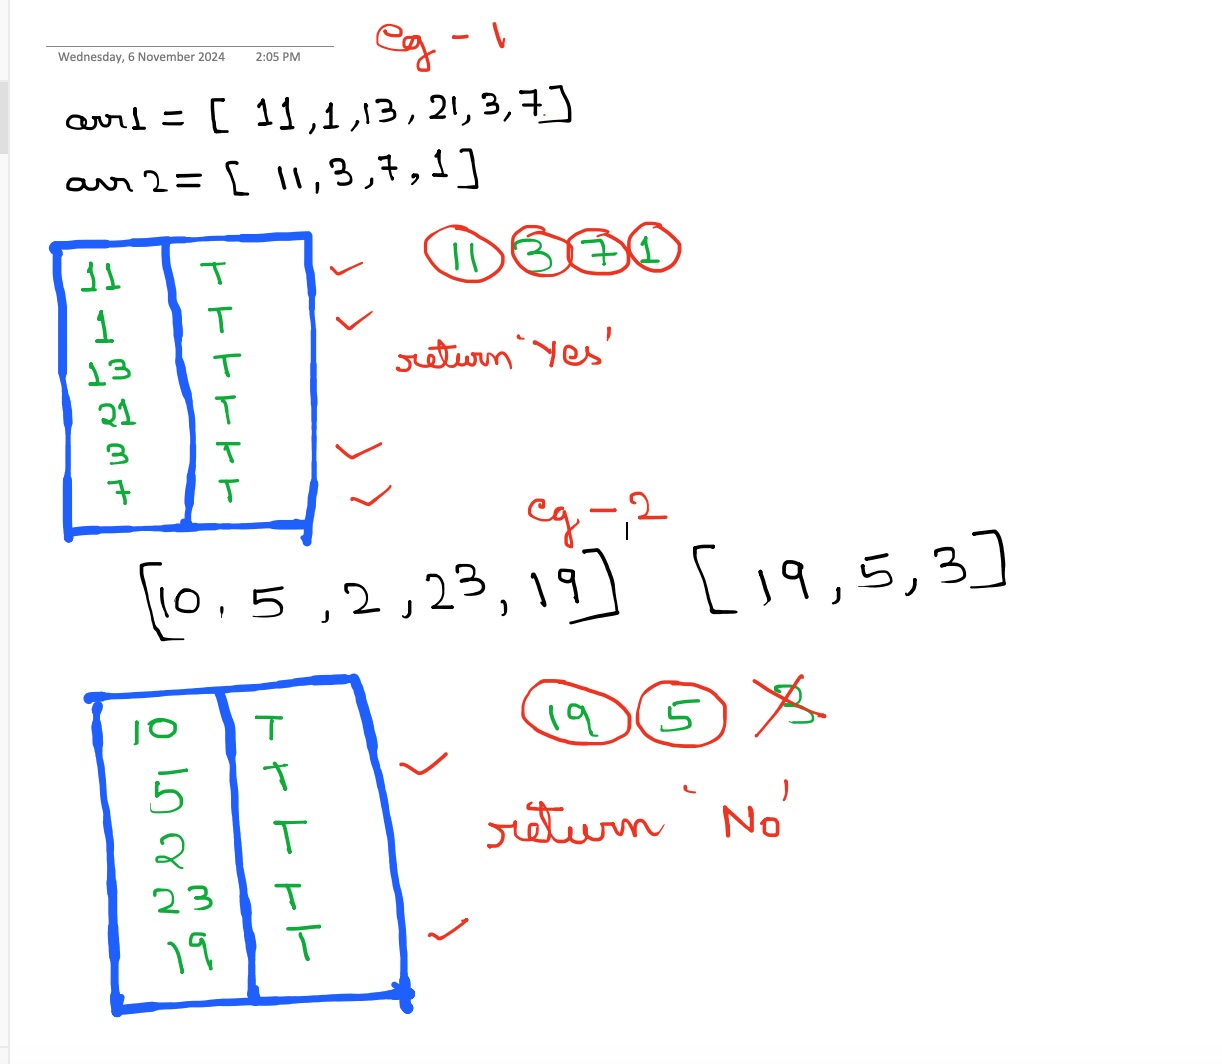 eg - 1
Wednesday, 6 November 2024 2:05 PM
arr1 = [ 11, 1, 13, 21, 3, 7 ]
arr2 = [ 11, 3, 7, 1 ]
11 T
1 T
13 T
21 T
3 T
7 T
11 3 7 1
return 'Yes'
eg - 2
[10, 5, 2, 23, 19] [19, 5, 3]
10 T
5 T
2 T
23 T
19 T
19 5 3
return 'No'